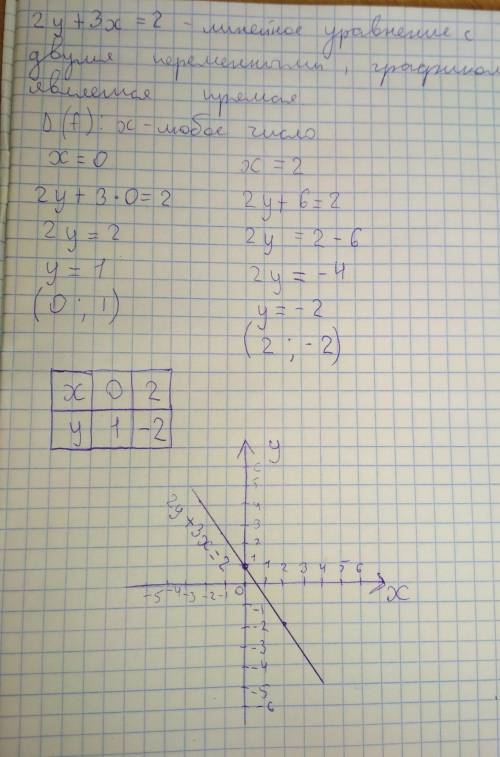 2y + 3x = 2 - линейное уравнение с
двумя переменными, графиком
является прямая
D(f): x - любое число
x = 0
2y + 3 · 0 = 2
2y = 2
y = 1
(0 ; 1)
x = 2
2y + 6 = 2
2y = 2 - 6
2y = -4
y = -2
(2 ; -2)
x 0 2
y 1 -2
y
6
5
4
3
2
1
2y + 3x = 2
-5 -4 -3 -2 -1 0 1 2 3 4 5 6
x
-1
-2
-3
-4
-5
-6